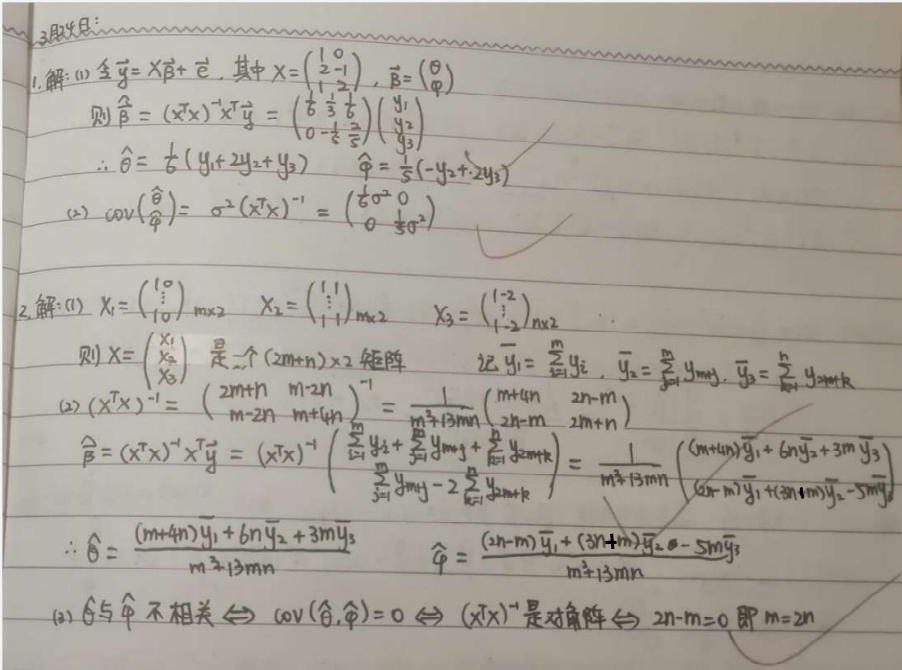 3月24日:
1.解:(1) 令 $\vec{y}=X\vec{\beta}+\vec{e}$, 其中 $X=\begin{pmatrix}1&0\\2&-1\\1&2\end{pmatrix}$, $\vec{\beta}=\begin{pmatrix}\theta\\\varphi\end{pmatrix}$
则 $\hat{\vec{\beta}}=(X^TX)^{-1}X^T\vec{y}=\begin{pmatrix}\frac{1}{6}&\frac{1}{3}&\frac{1}{6}\\0&-\frac{1}{5}&\frac{2}{5}\end{pmatrix}\begin{pmatrix}y_1\\y_2\\y_3\end{pmatrix}$
∴ $\hat{\theta}=\frac{1}{6}(y_1+2y_2+y_3)$ $\hat{\varphi}=\frac{1}{5}(-y_2+2y_3)$
(2) $cov\begin{pmatrix}\hat{\theta}\\\hat{\varphi}\end{pmatrix}=\sigma^2(X^TX)^{-1}=\begin{pmatrix}\frac{1}{6}\sigma^2&0\\0&\frac{1}{5}\sigma^2\end{pmatrix}$
2.解:(1) $X_1=\begin{pmatrix}1&0\\\vdots\\1&0\end{pmatrix}_{m\times2}$ $X_2=\begin{pmatrix}1&1\\\vdots\\1&1\end{pmatrix}_{m\times2}$ $X_3=\begin{pmatrix}1&-2\\\vdots\\1&-2\end{pmatrix}_{n\times2}$
则 $X=\begin{pmatrix}X_1\\X_2\\X_3\end{pmatrix}$ 是一个 $(2m+n)\times2$ 矩阵 记 $\bar{y}_1=\sum_{i=1}^{m}y_i$, $\bar{y}_2=\sum_{j=1}^{m}y_{m+j}$, $\bar{y}_3=\sum_{k=1}^{n}y_{2m+k}$
(2) $(X^TX)^{-1}=\begin{pmatrix}2m+n&m-2n\\m-2n&m+4n\end{pmatrix}^{-1}=\frac{1}{m^2+13mn}\begin{pmatrix}m+4n&2n-m\\2n-m&2m+n\end{pmatrix}$
$\hat{\vec{\beta}}=(X^TX)^{-1}X^T\vec{y}=(X^TX)^{-1}\begin{pmatrix}\sum_{i=1}^{m}y_i+\sum_{j=1}^{m}y_{m+j}+\sum_{k=1}^{n}y_{2m+k}\\\sum_{j=1}^{m}y_{m+j}-2\sum_{k=1}^{n}y_{2m+k}\end{pmatrix}=\frac{1}{m^2+13mn}\begin{pmatrix}(m+4n)\bar{y}_1+6n\bar{y}_2+3m\bar{y}_3\\(2n-m)\bar{y}_1+(3n+m)\bar{y}_2-5m\bar{y}_3\end{pmatrix}$
∴ $\hat{\theta}=\frac{(m+4n)\bar{y}_1+6n\bar{y}_2+3m\bar{y}_3}{m^2+13mn}$ $\hat{\varphi}=\frac{(2n-m)\bar{y}_1+(3n+m)\bar{y}_2-5m\bar{y}_3}{m^2+13mn}$
(3) $\hat{\theta}$ 与 $\hat{\varphi}$ 不相关 ⇔ $cov(\hat{\theta},\hat{\varphi})=0$ ⇔ $(X^TX)^{-1}$ 是对角阵 ⇔ $2n-m=0$ 即 $m=2n$